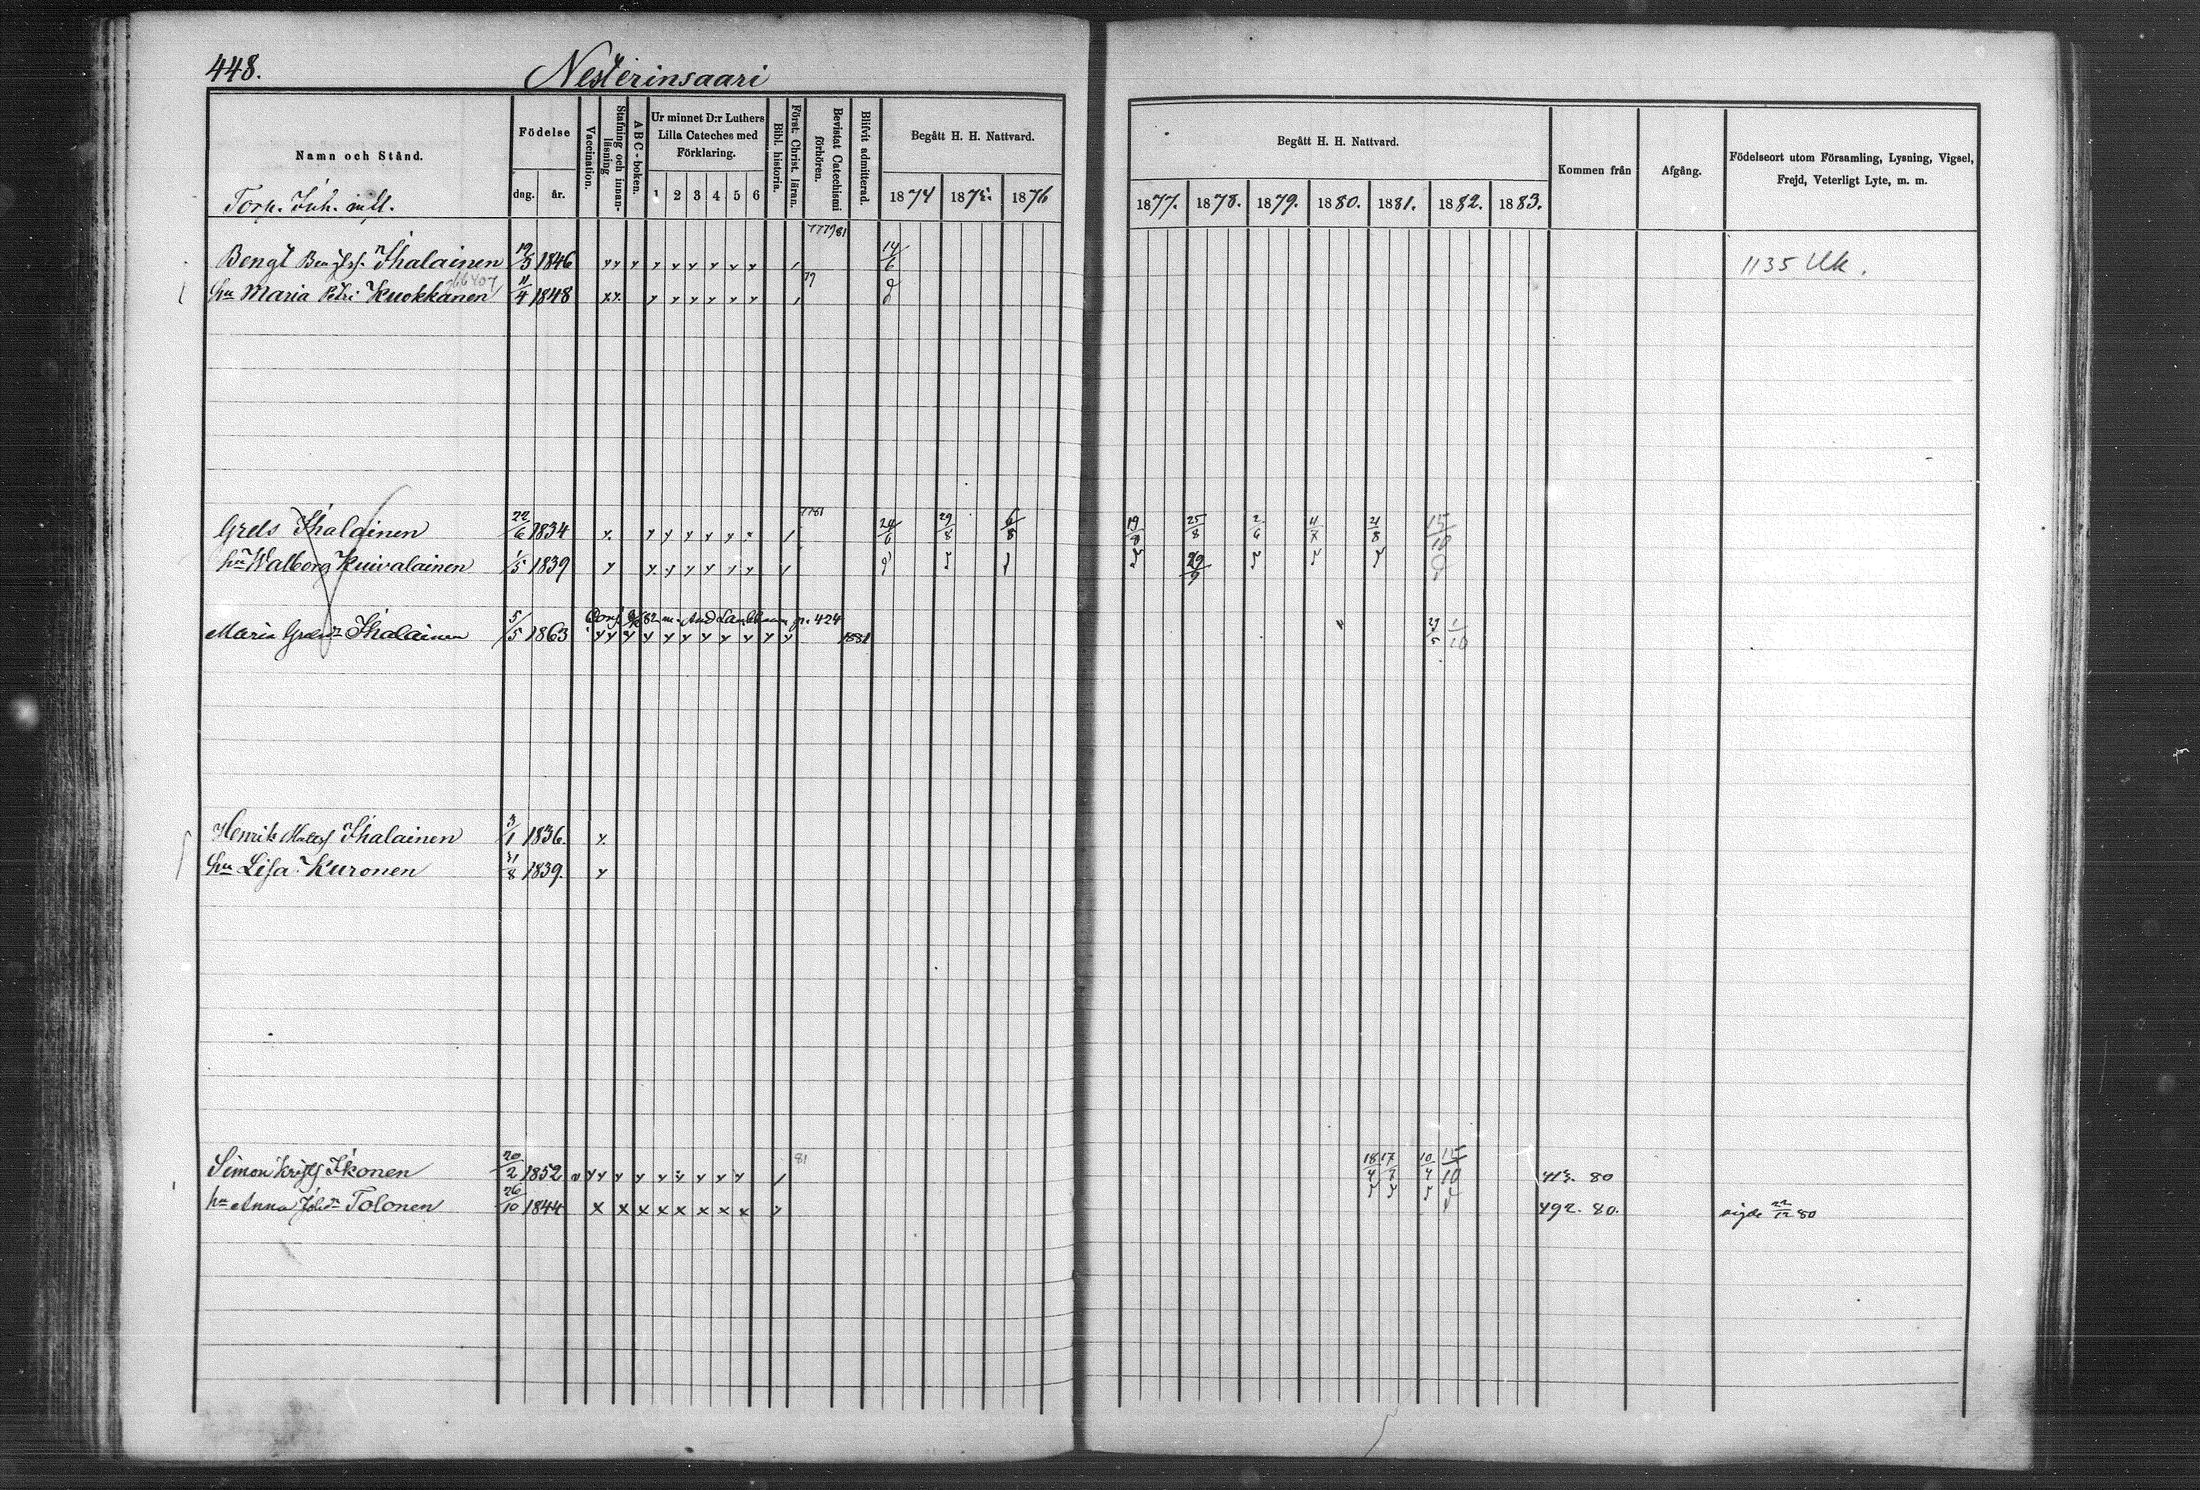 448.
Nesterinsaari
Namn och Stånd.
Födelse
dag. år.
Vaccination.
Stafning och innanläsning
ABC-boken.
Ur minnet D:r Luthers
Lilla Cateches med
Förklaring.
1 2 3 4 5 6
Bibl. historia.
Först. Christ. läran.
Bevistat Catechismi förhören.
Blifvit admitterad.
Begått H. H. Nattvard.
1874 1875. 1876
Begått H. H. Nattvard.
1877. 1878. 1879. 1880. 1881. 1882. 1883.
Kommen från
Afgång.
Födelseort utom Församling, Lysning, Vigsel,
Frejd, Veterligt Lyte, m. m.
Torp. Inh. m. fl.
777981
Bengt Bengtss. Ihalainen 12/3 1846 14/6 1135 Uk.
hu Maria Petri Kuokkanen 11/4 1848 79
7781
Grels Ihalainen 22/6 1834 24/6 29/8 6/8 19/8 25/8 2/6 4/7 21/8 15/10
hu Walborg Kuivalainen 1/5 1839 29/9
Maria Ihalainen 5/5 1863 p. 424 1881 27/5 1/10
Henrik Matts Ihalainen 3/1 1836.
hu Lisa Kuronen 31/8 1839.
Simon Ikonen 20/2 1852 81 18/4 17/7 10/4 15/10 413. 80
hu Anna Tolonen 26/10 1844 492. 80. vigde 22/12 80